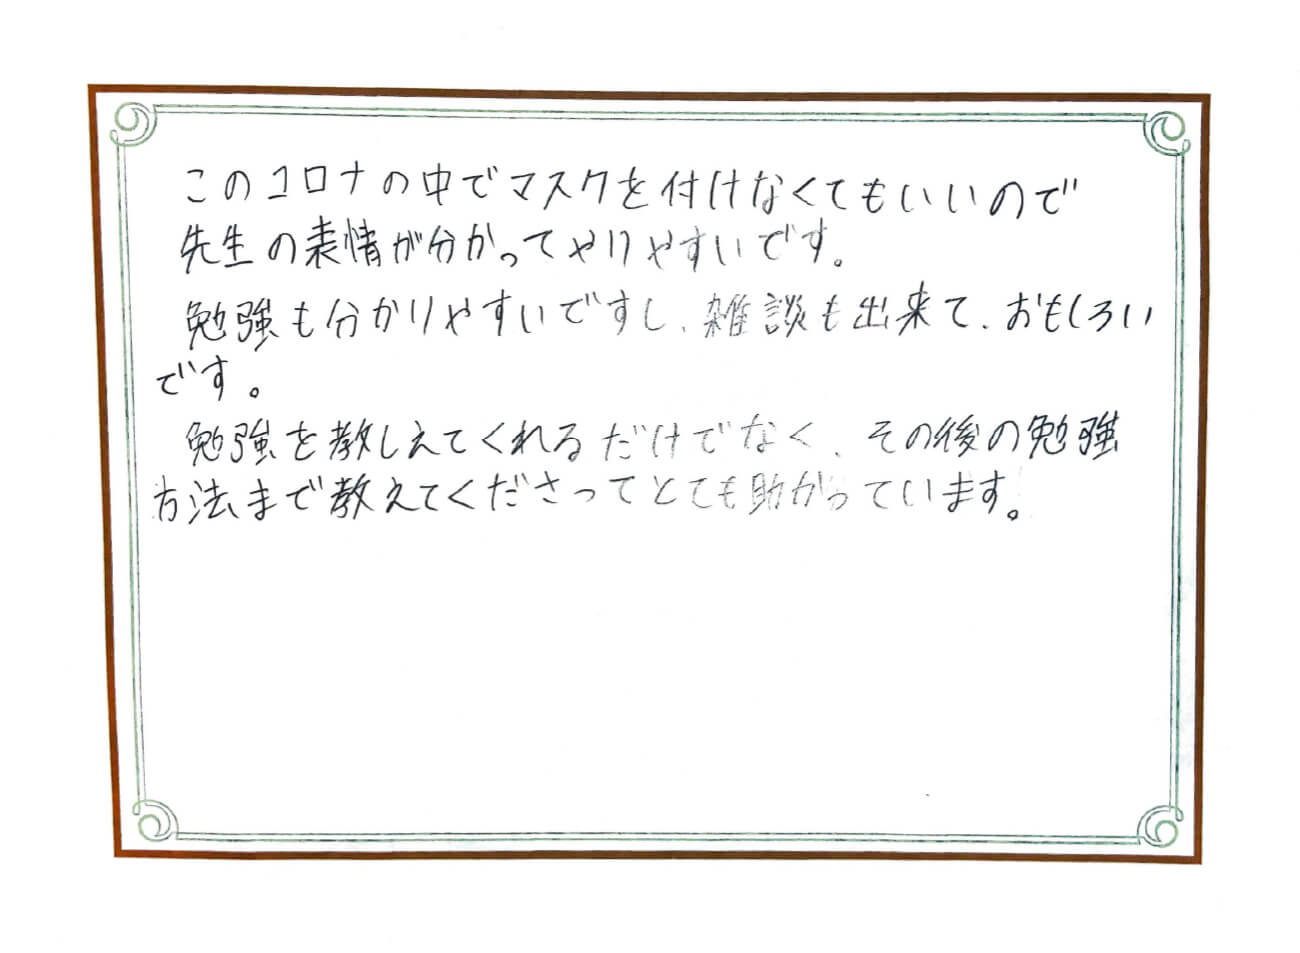 このコロナの中でマスクを付けなくてもいいので
先生の表情が分かってやりやすいです。
勉強も分かりやすいですし、雑談も出来て、おもしろい
です。
勉強を教しえてくれるだけでなく、その後の勉強
方法まで教えてくださってとても助かっています。